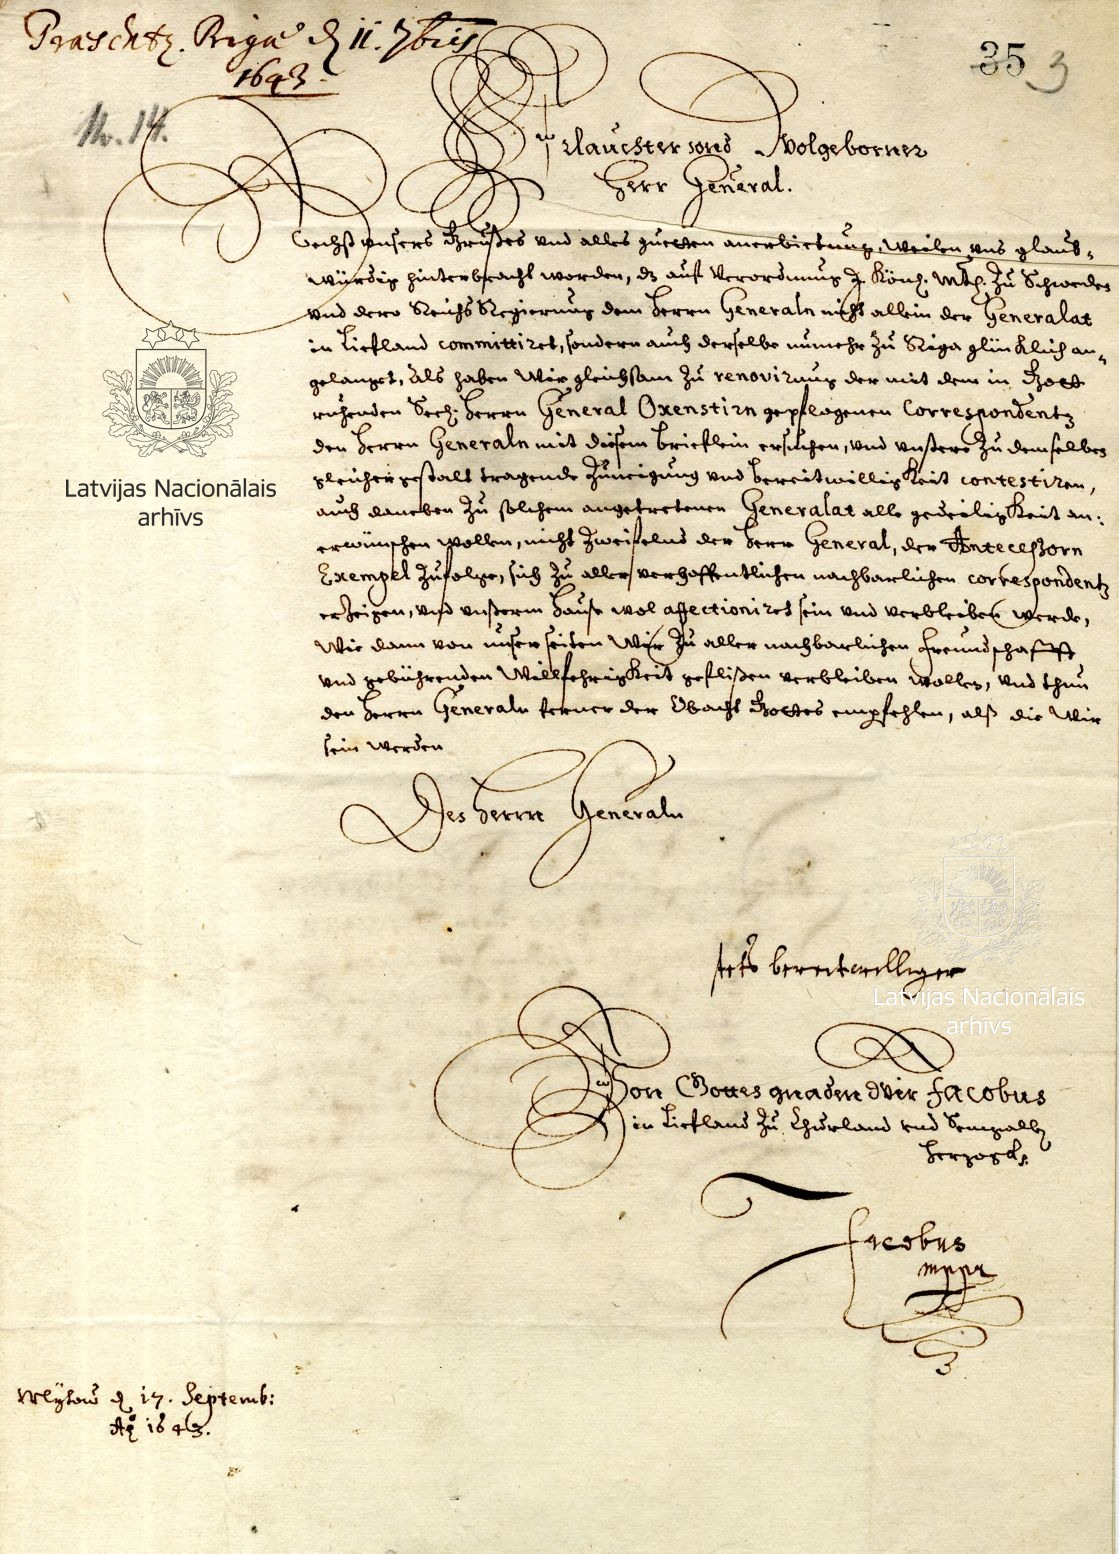 Præsentz. Riga d 11. 7bris
1643.
35 3
Nr. 14.
Erlauchter vnd Wolgeborner
Herr General.
Nechst vnsers Grußes vnd alles guetten anerbietung, Weilen vns glaub-
würdig hinterbracht worden, dz auff Verordnung d. Königl. Mtt. Zu Schweden
vnd dero Reichs Regierung dem Herrn Generaln nicht allein der Generalat
in Liefland committiret, sondern auch derselbe nunmehr Zu Riga glücklich an-
gelanget, Als haben Wir gleichsam Zu renovirung der mit dem in Gott
ruhenden Seel: Herrn General Oxenstirn gepflogenen Correspondentz
den Herrn Generaln mit diesem brieflein ersuchen, vnd vnßere Zu demselben
gleicher gestalt tragende Zuneigung vnd bereitwilligKeit contestiren,
auch daneben Zu solchem angetretenen Generalat alle gedeiligKeit an-
erwünschen wollen, nicht Zweifelnd der Herr General, der Antecessorn
Exempel Zufolge, sich Zu aller verhoffentlichen nachbarlichen correspondentz
erZeigen, vnd vnßerm Hause wol affectioniret sein vnd verbleiben werde,
Wie dann von unser seiten Wir Zu aller nachbarlichen freundschafft
vnd gebührenden WillfehrigKeit geflißen verbleiben wollen, vnd thun
den Herrn Generaln ferner der Obacht Gottes empfehlen, alß die Wir
sein werden
Des Herrn Generaln
stets bereitwilliger
Von Gottes gnaden Wir Jacobus
in Liefland Zu Churland vnd Semgalln
Hertzogk.
Jacobus
mppr
Mÿtow d 17. Septemb:
Ao 1643.
Latvijas Nacionālais
arhīvs
Latvijas Nacionālais
arhīvs